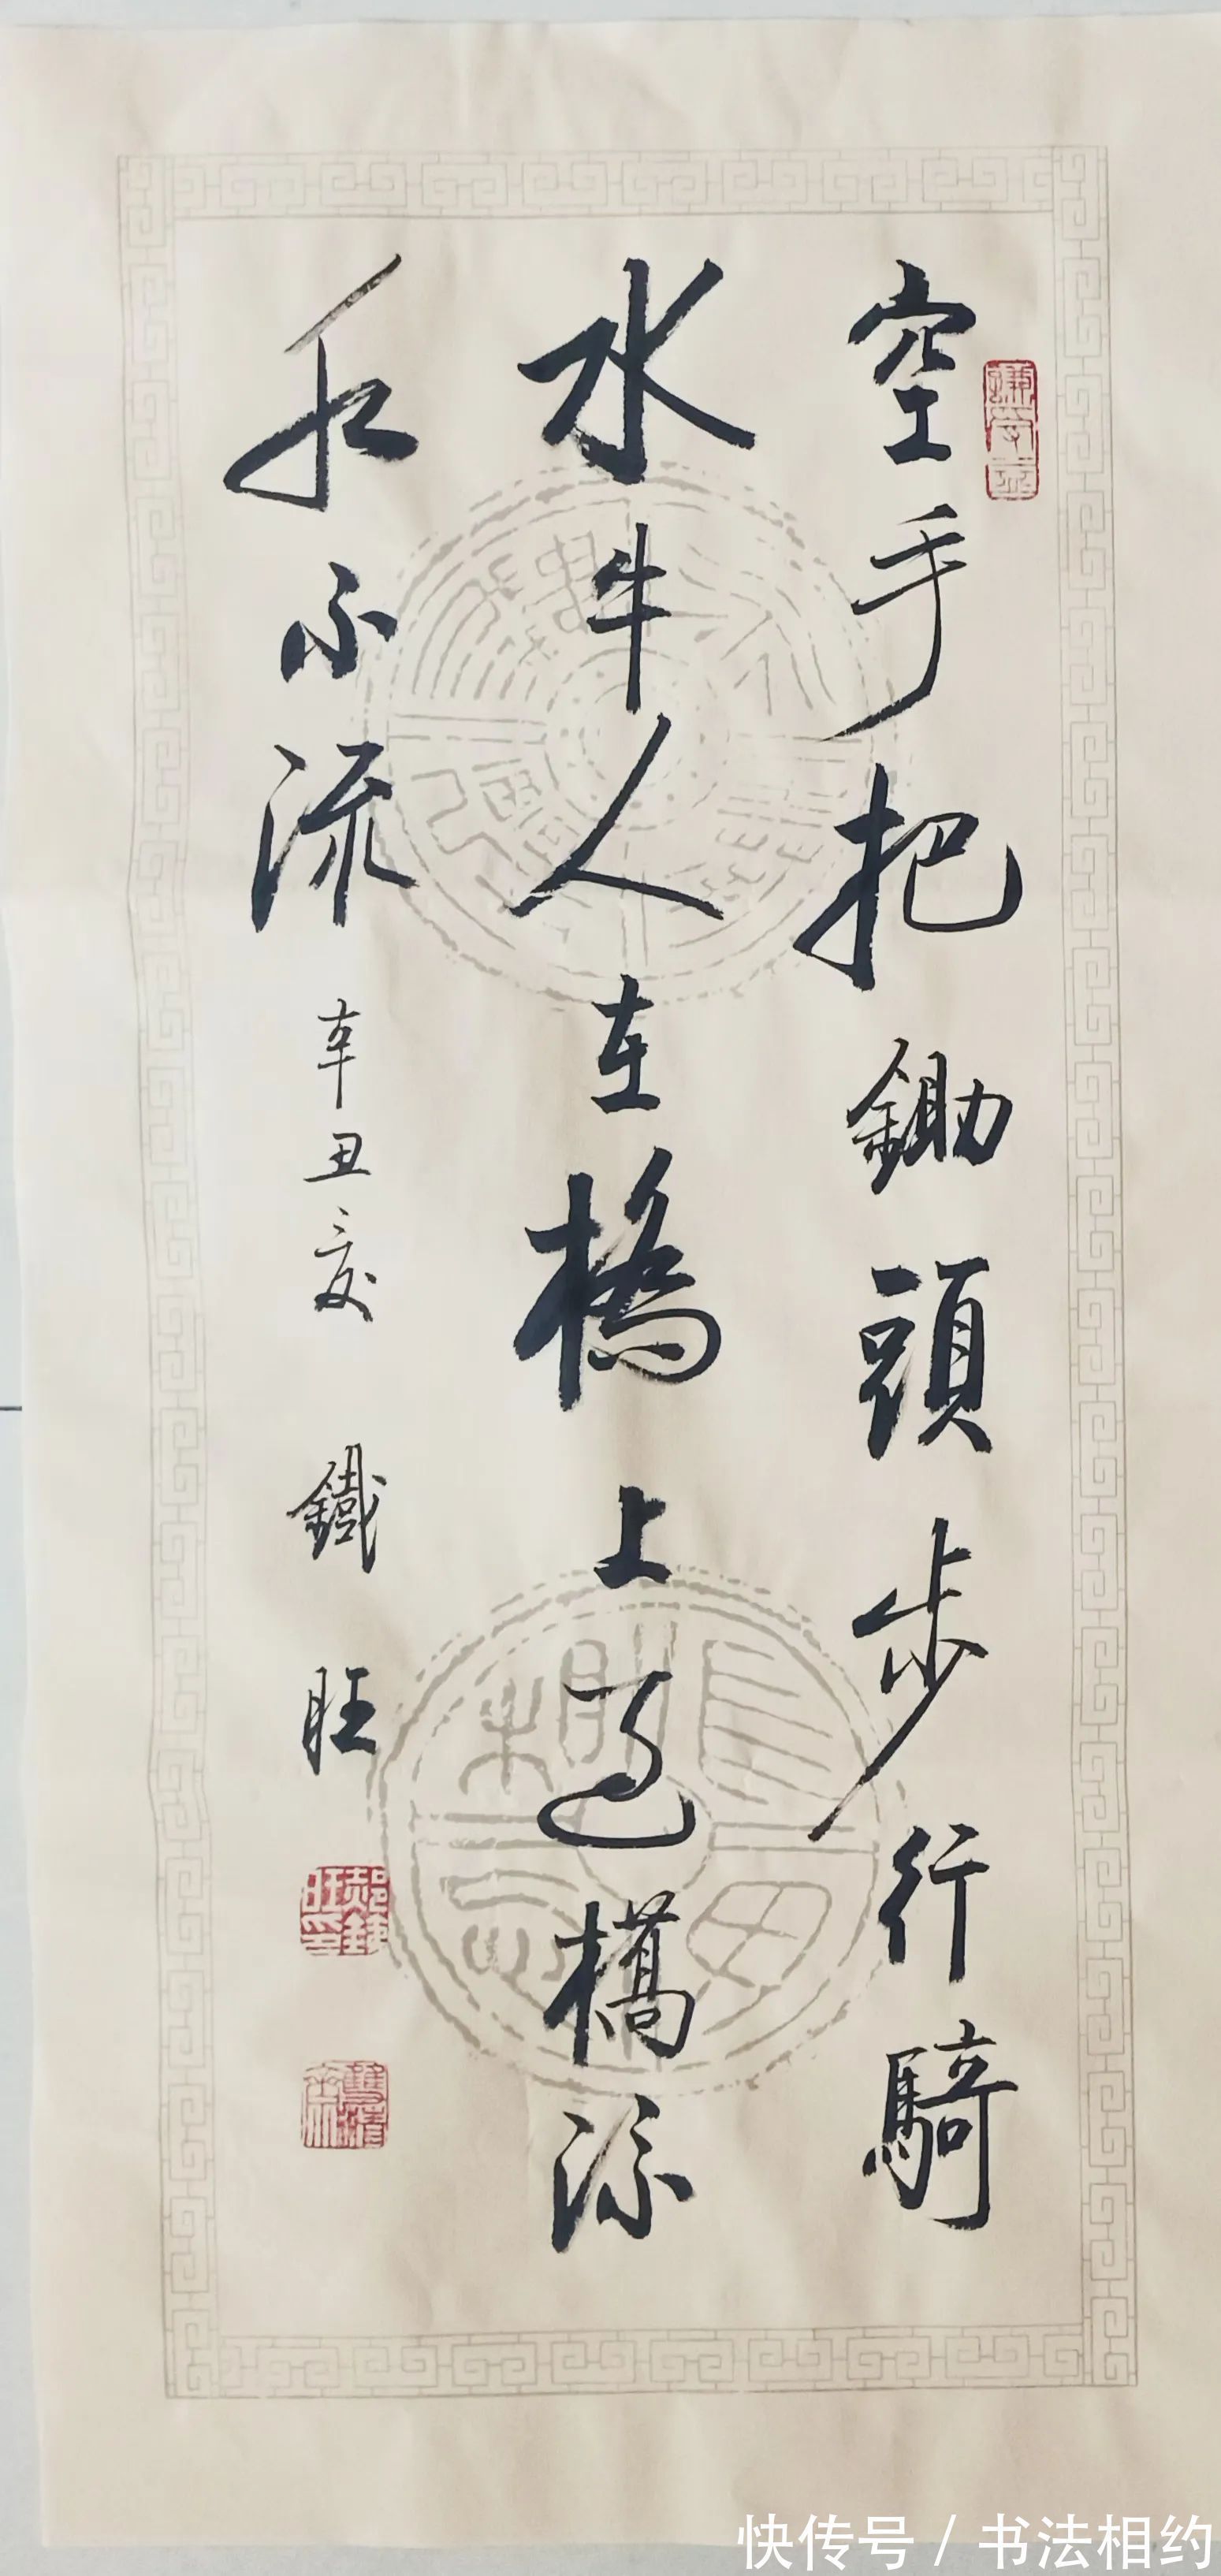 空手把鋤頭步行騎
水牛人在橋上過橋流
水不流
辛丑夏 鐵旺
謙受益
郝鐵旺印
快传号 / 书法相约